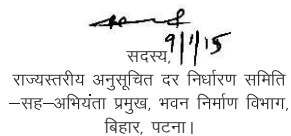 9/1/15
सदस्य,
राज्यस्तरीय अनुसूचित दर निर्धारण समिति
–सह–अभियंता प्रमुख, भवन निर्माण विभाग,
बिहार, पटना।